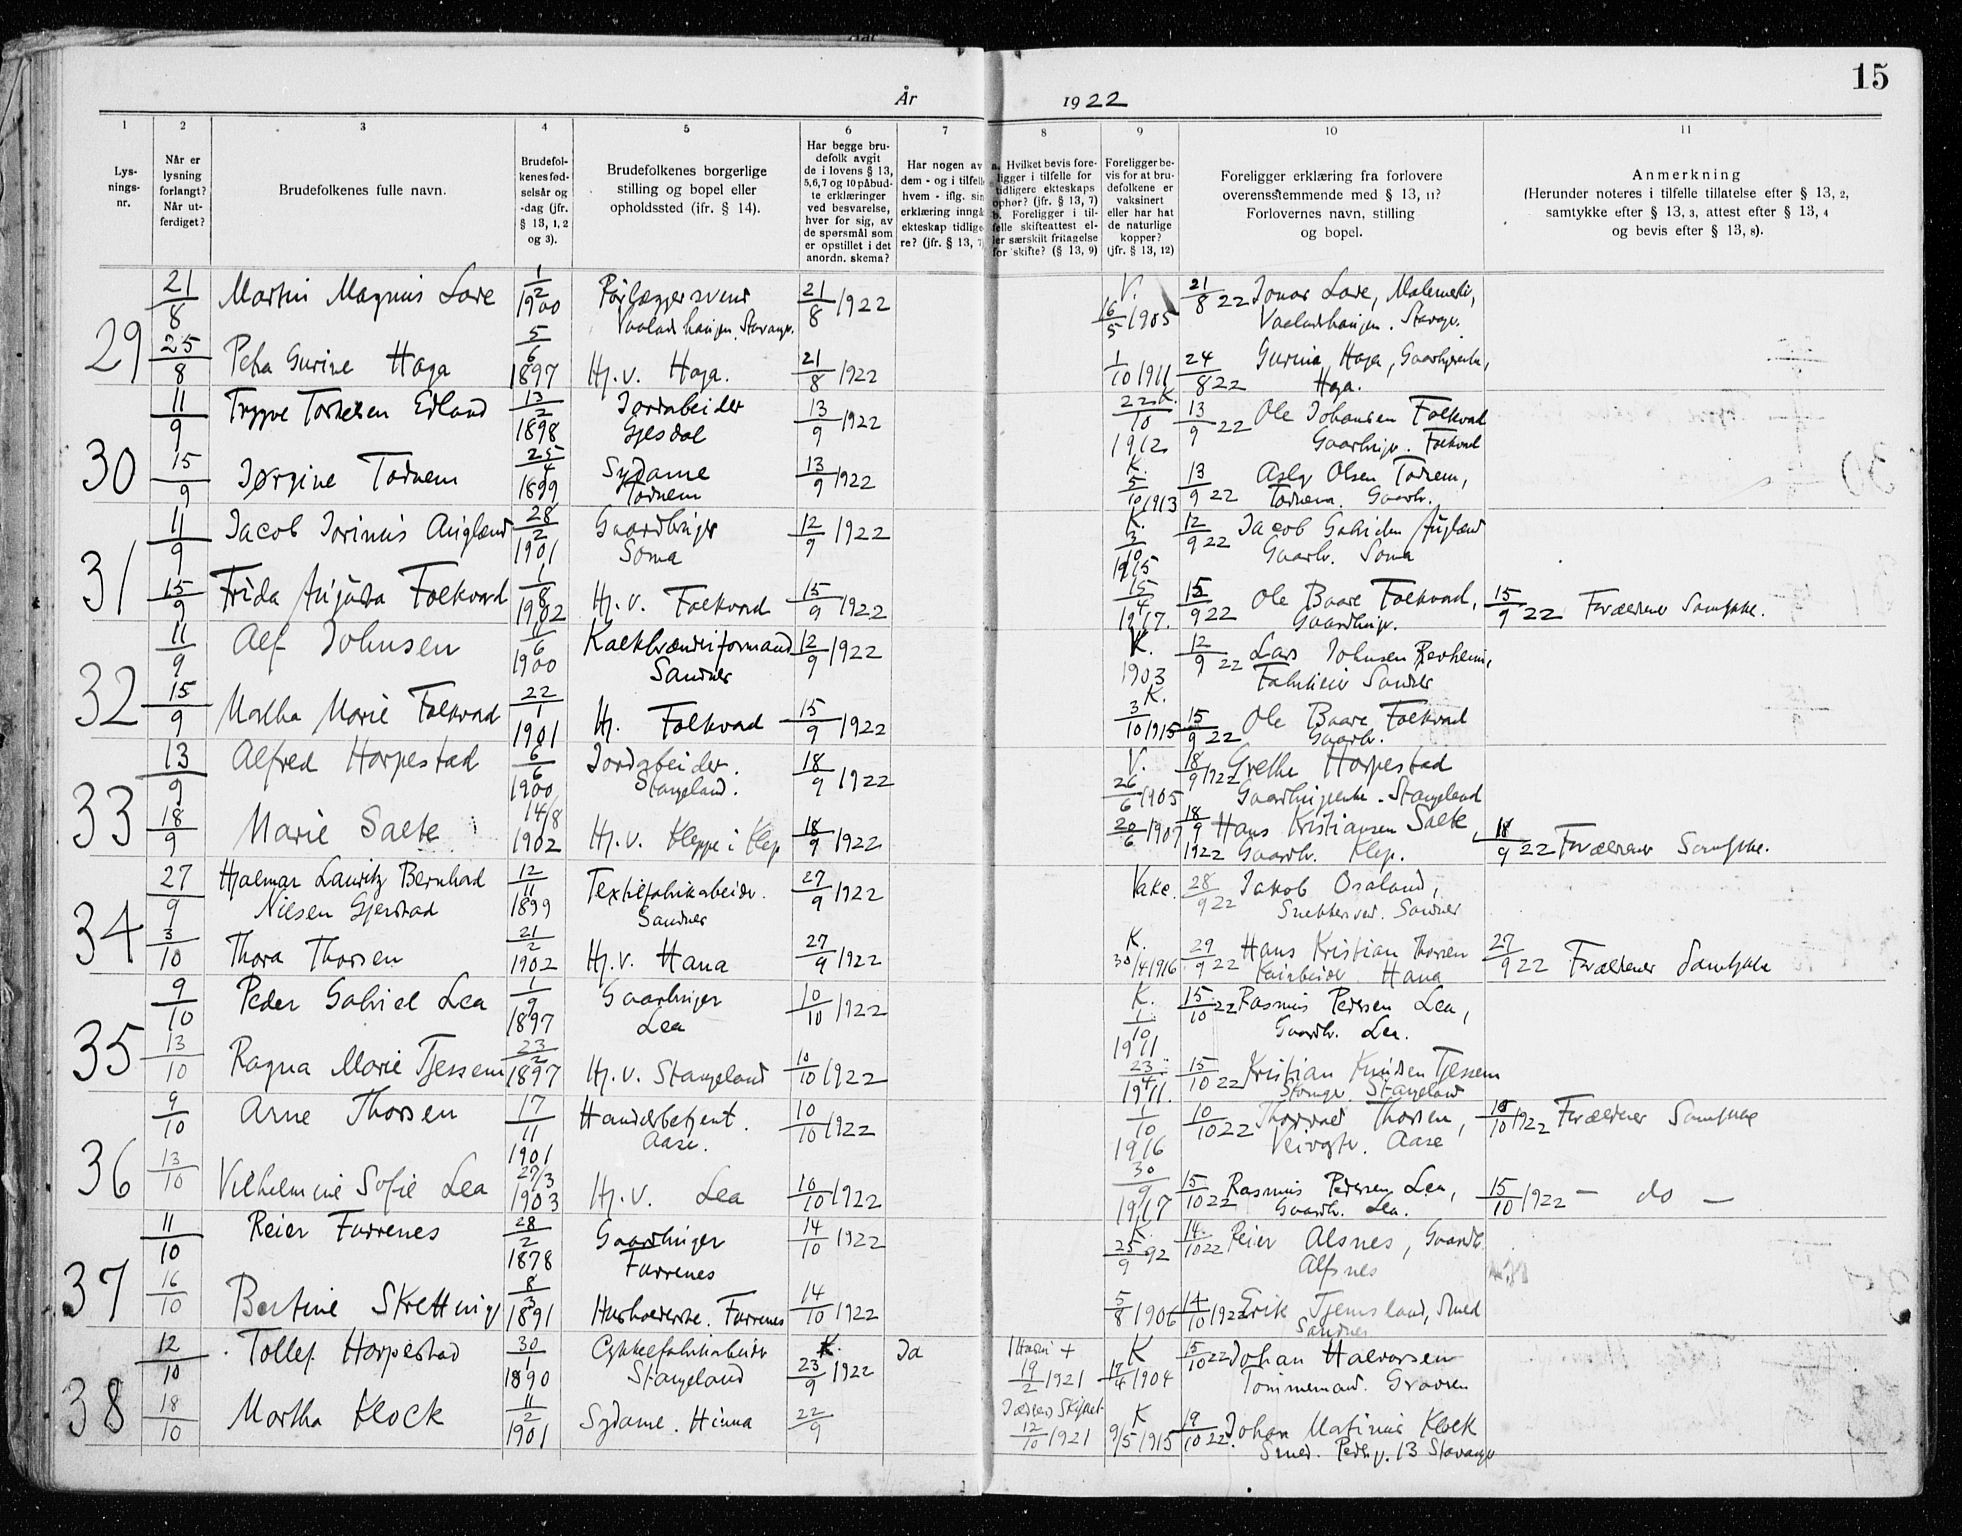 15
År 1922
1 2 3 4 5 6 7 8 9 10 11
Lys-
nings-
nr.
Når er
lysning
forlangt?
Når ut-
ferdiget?
Brudefolkenes fulle navn.
Brudefol-
kenes fød-
selsår og
-dag (jfr.
§ 13, 1, 2
og 3).
Brudefolkenes borgerlige
stilling og bopel eller
opholdssted (ifr. § 14).
Har begge bru-
defolk avgit
de i lovens § 13,
5,6,7 og 10 påbud-
te erklæringer
ved besvarelse,
hver for sig, av
de spørsmål som
er opstillet i det
anordn. skema?
Har nogen av
dem - og i tilfelle
hvem - iflg. sin
erklæring inngå
ekteskap tidlige-
re? (jfr. § 13, 7)
a. Hvilket bevis fore-
ligger i tilfelle for
tidligere ekteskaps
ophør? (jfr. § 13, 7)
b. Foreligger i til-
felle skifteattest el-
ler særskilt fritagelse
for skifte? (§ 13, 9)
Foreligger be-
vis for at bru-
defolkene er
vaksinert
eller har hat
de naturlige
kopper?
(jfr. § 13, 12)
Foreligger erklæring fra forlovere
overensstemmende med § 13, 11?
Forlovernes navn, stilling
og bopel.
Anmerkning
(Herunder noteres i tilfelle tillatelse efter § 13, 2,
samtykke efter § 13, 3, attest efter § 13, 4
og bevis efter § 13, 8).
29
21/8 Martin Magnus Love 1/2 1900 21/8 1922 V. 16/5 1905 21/8 22
25/8 Petra Gurine Haga 5/6 1897 Hj.v. Haga. 21/8 1922 1/10 1911 24/8 22 Haga.
30
11/9 Trygve Torkelsen Edland 13/2 1898 Jordarbeider Gjesdal 13/9 1922 22/10 K. 1912 13/9 22 Ole Johansen Folkvord
Gaardbr. Folkvord
15/9 Jørgine Tornem 25/4 1899 Sydame 13/9 1922 K. 5/10 1913 13/9 22 Olsen
31
11/9 Jacob 28/2 1901 Gaardbruger Soma 12/9 1922 K. 3/10 1915 12/9 22 Jacob
Gaardb. Soma
15/9 Frida Folkvord 1/8 1902 Hj.v. Folkvord 15/9 1922 15/4 1917. 15/9 22 Ole Baare Folkvord,
Gaardbrugr. 15/9 22 Forældrenes Samtykke.
32
11/9 Alf Johnsen 1/6 1900 Sandnes 12/9 1922 K. 1903 12/9 22 Lars Johnsen
Sandnes
15/9 Martha Marie Folkvord 22/1 1901 Hj. Folkvord 15/9 1922 K. 3/10 1915 15/9 22 Ole Baare Folkvord
Gaardb.
33
13/9 Alfred Horpestad 6/6 1900 Jordarbeider. Stangeland. 18/9 1922 V. 26/6 1905 18/9 1922 Grethe Horpestad
Stangeland
18/9 Marie Salte 14/8 1902 Hj.v. Kleppe i Klep 18/9 1922 20/6 1907 18/9 1922 Hans Kristiansen Salte,
Gaardbr. Klep. 18/9 22 Forældrenes Samtykke.
34
27/9 Hjalmar Lauritz Bernhard
Nilsen Gjerstad 12/11 1899 Textilfabrikarbeider. Sandnes 27/9 1922 28/9 22 Jakob Osaland,
Sandnes
3/10 Thora Thorsen 21/2 1902 Hj.v. Hana 27/9 1922 K. 30/4 1916 29/9 22 Hans Kristian Thorsen
Hana 27/9 22 Forældrenes Samtykke
35
9/10 Peder Gabriel Lea 1/9 1897 Gaardbruger Lea 10/10 1922 K. 1/10 1911 15/10 22 Rasmus Pedersen Lea,
Gaardbr. Lea.
13/10 Ragna Marie Tjessem 23/2 1897 Hj.v. Stangeland 10/10 1922 23/4 1911. 15/10 22 Kristian Knudsen Tjessem
Stangeland
36
9/10 Arne Thorsen 17/11 1901 Handelsbetjent. Aase. 10/10 1922 1/10 1916 10/10 22 Thorvald Thorsen,
Aase 10/10 1922 Forældrenes Samtykke
13/10 Vilhelmine Sofie Lea 27/3 1903 Hj.v. Lea 10/10 1922 30/9 1917 15/10 22 Rasmus Pedersen Lea,
Gaardbr. Lea. 15/10 1922 — do —
37
11/10 Reier Furrenes 28/2 1878 Gaardbruger Furrenes 14/10 1922 K. 25/9 92 14/10 22 Reier Alsnes, Gaardb.
Alsnes
16/10 Bertine Skretting 8/3 1891 Husholderske. Furrenes 14/10 1922 5/8 1906 14/10 1922 Erik Tjemsland, Smed
Sandnes
38
12/10 Tollef Horpestad 30/1 1890 Cykkelfabrikarbeider Stangeland K. 23/9 1922 Ja Hustru + 19/2 1921 K 17/4 1904 15/10 22 Johan Halvorsen
Tømmermand. Gravren
18/10 Martha Klock 11/2 1901 Sydame. Hinna 22/9 12/10 1921 K 9/5 1915 19/10 22. Johan Klock
Smed. 13 Stavanger